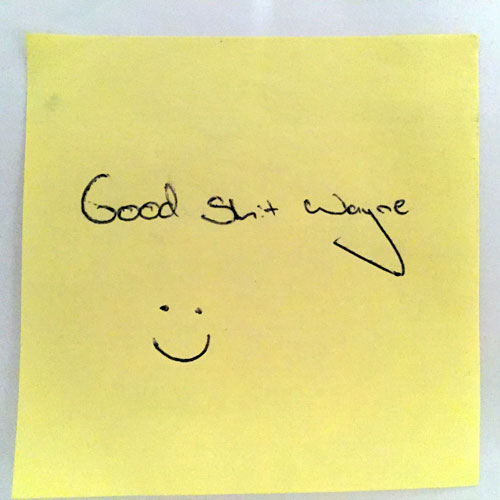 Good Shit Wayne